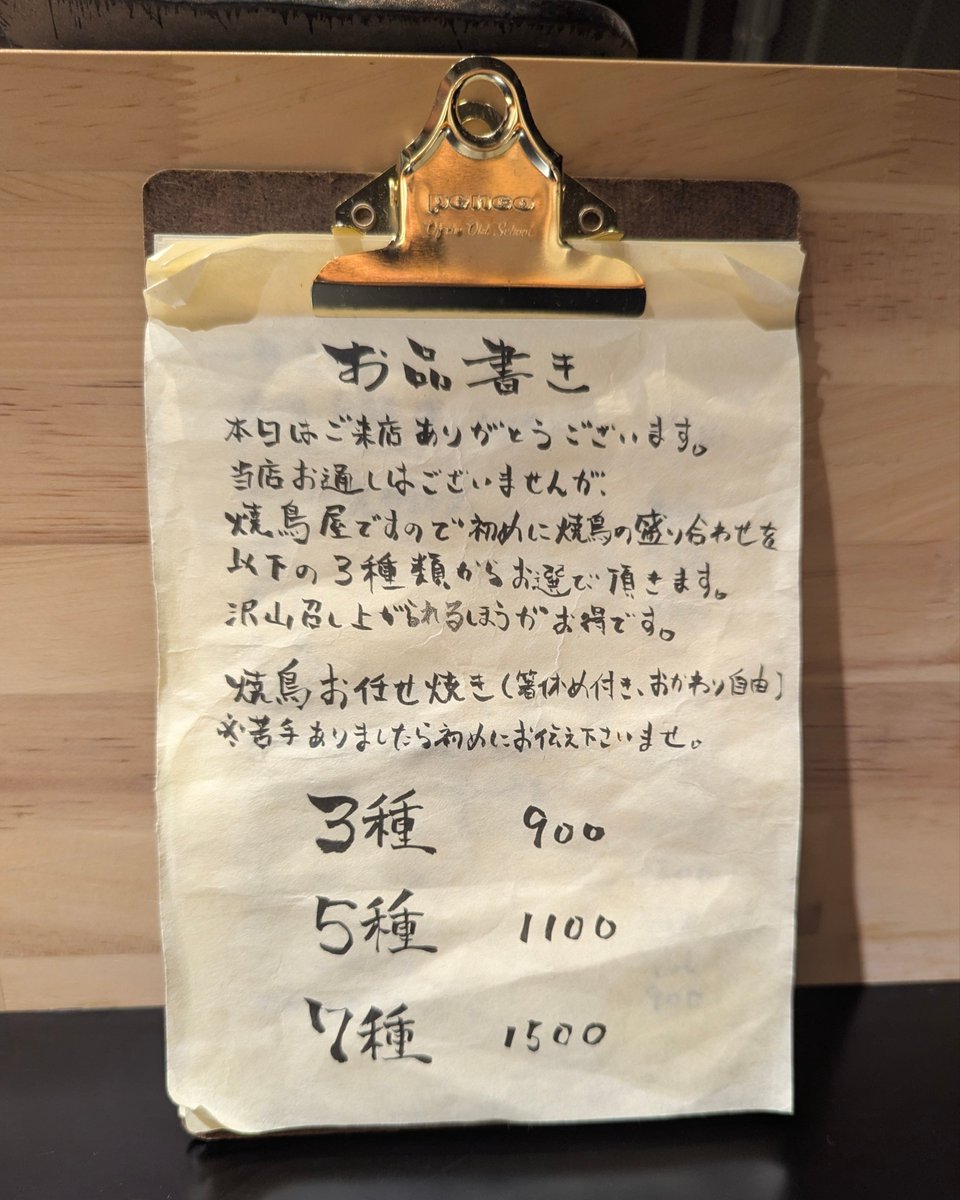 penco
お品書き
本日はご来店ありがとうございます。
当店お通しはございませんが、
焼鳥屋ですので初めに焼鳥の盛り合わせを
以下の3種類からお選び頂きます。
沢山召し上がられるほうがお得です。
焼鳥お任せ焼き(箸休め付き、おかわり自由)
※苦手ありましたら初めにお伝え下さいませ。
3種 900
5種 1100
7種 1500